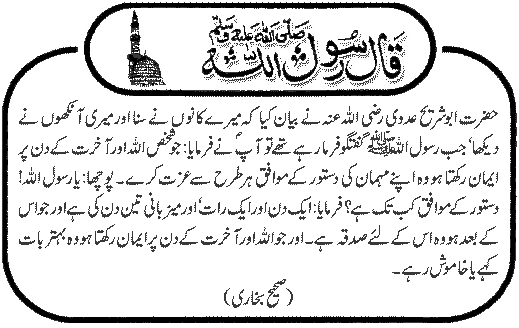 قال رسول اللہ صلی اللہ علیہ وسلم
حضرت ابوشریح عدوی رضی اللہ عنہ نے بیان کیا کہ میرے کانوں نے سنا اور میری آنکھوں نے
دیکھا‘ جب رسول اللہ ﷺ گفتگو فرما رہے تھے تو آپؐ نے فرمایا: جو شخص اللہ اور آخرت کے دن پر
ایمان رکھتا ہو وہ اپنے مہمان کی دستور کے موافق ہر طرح سے عزت کرے۔ پوچھا: یا رسول اللہ!
دستور کے موافق کب تک ہے؟ فرمایا: ایک دن اور ایک رات‘ اور میزبانی تین دن کی ہے اور جو اس
کے بعد ہو وہ اس کے لئے صدقہ ہے۔ اور جو اللہ اور آخرت کے دن پر ایمان رکھتا ہو وہ بہتر بات
کہے یا خاموش رہے۔
(صحیح بخاری)